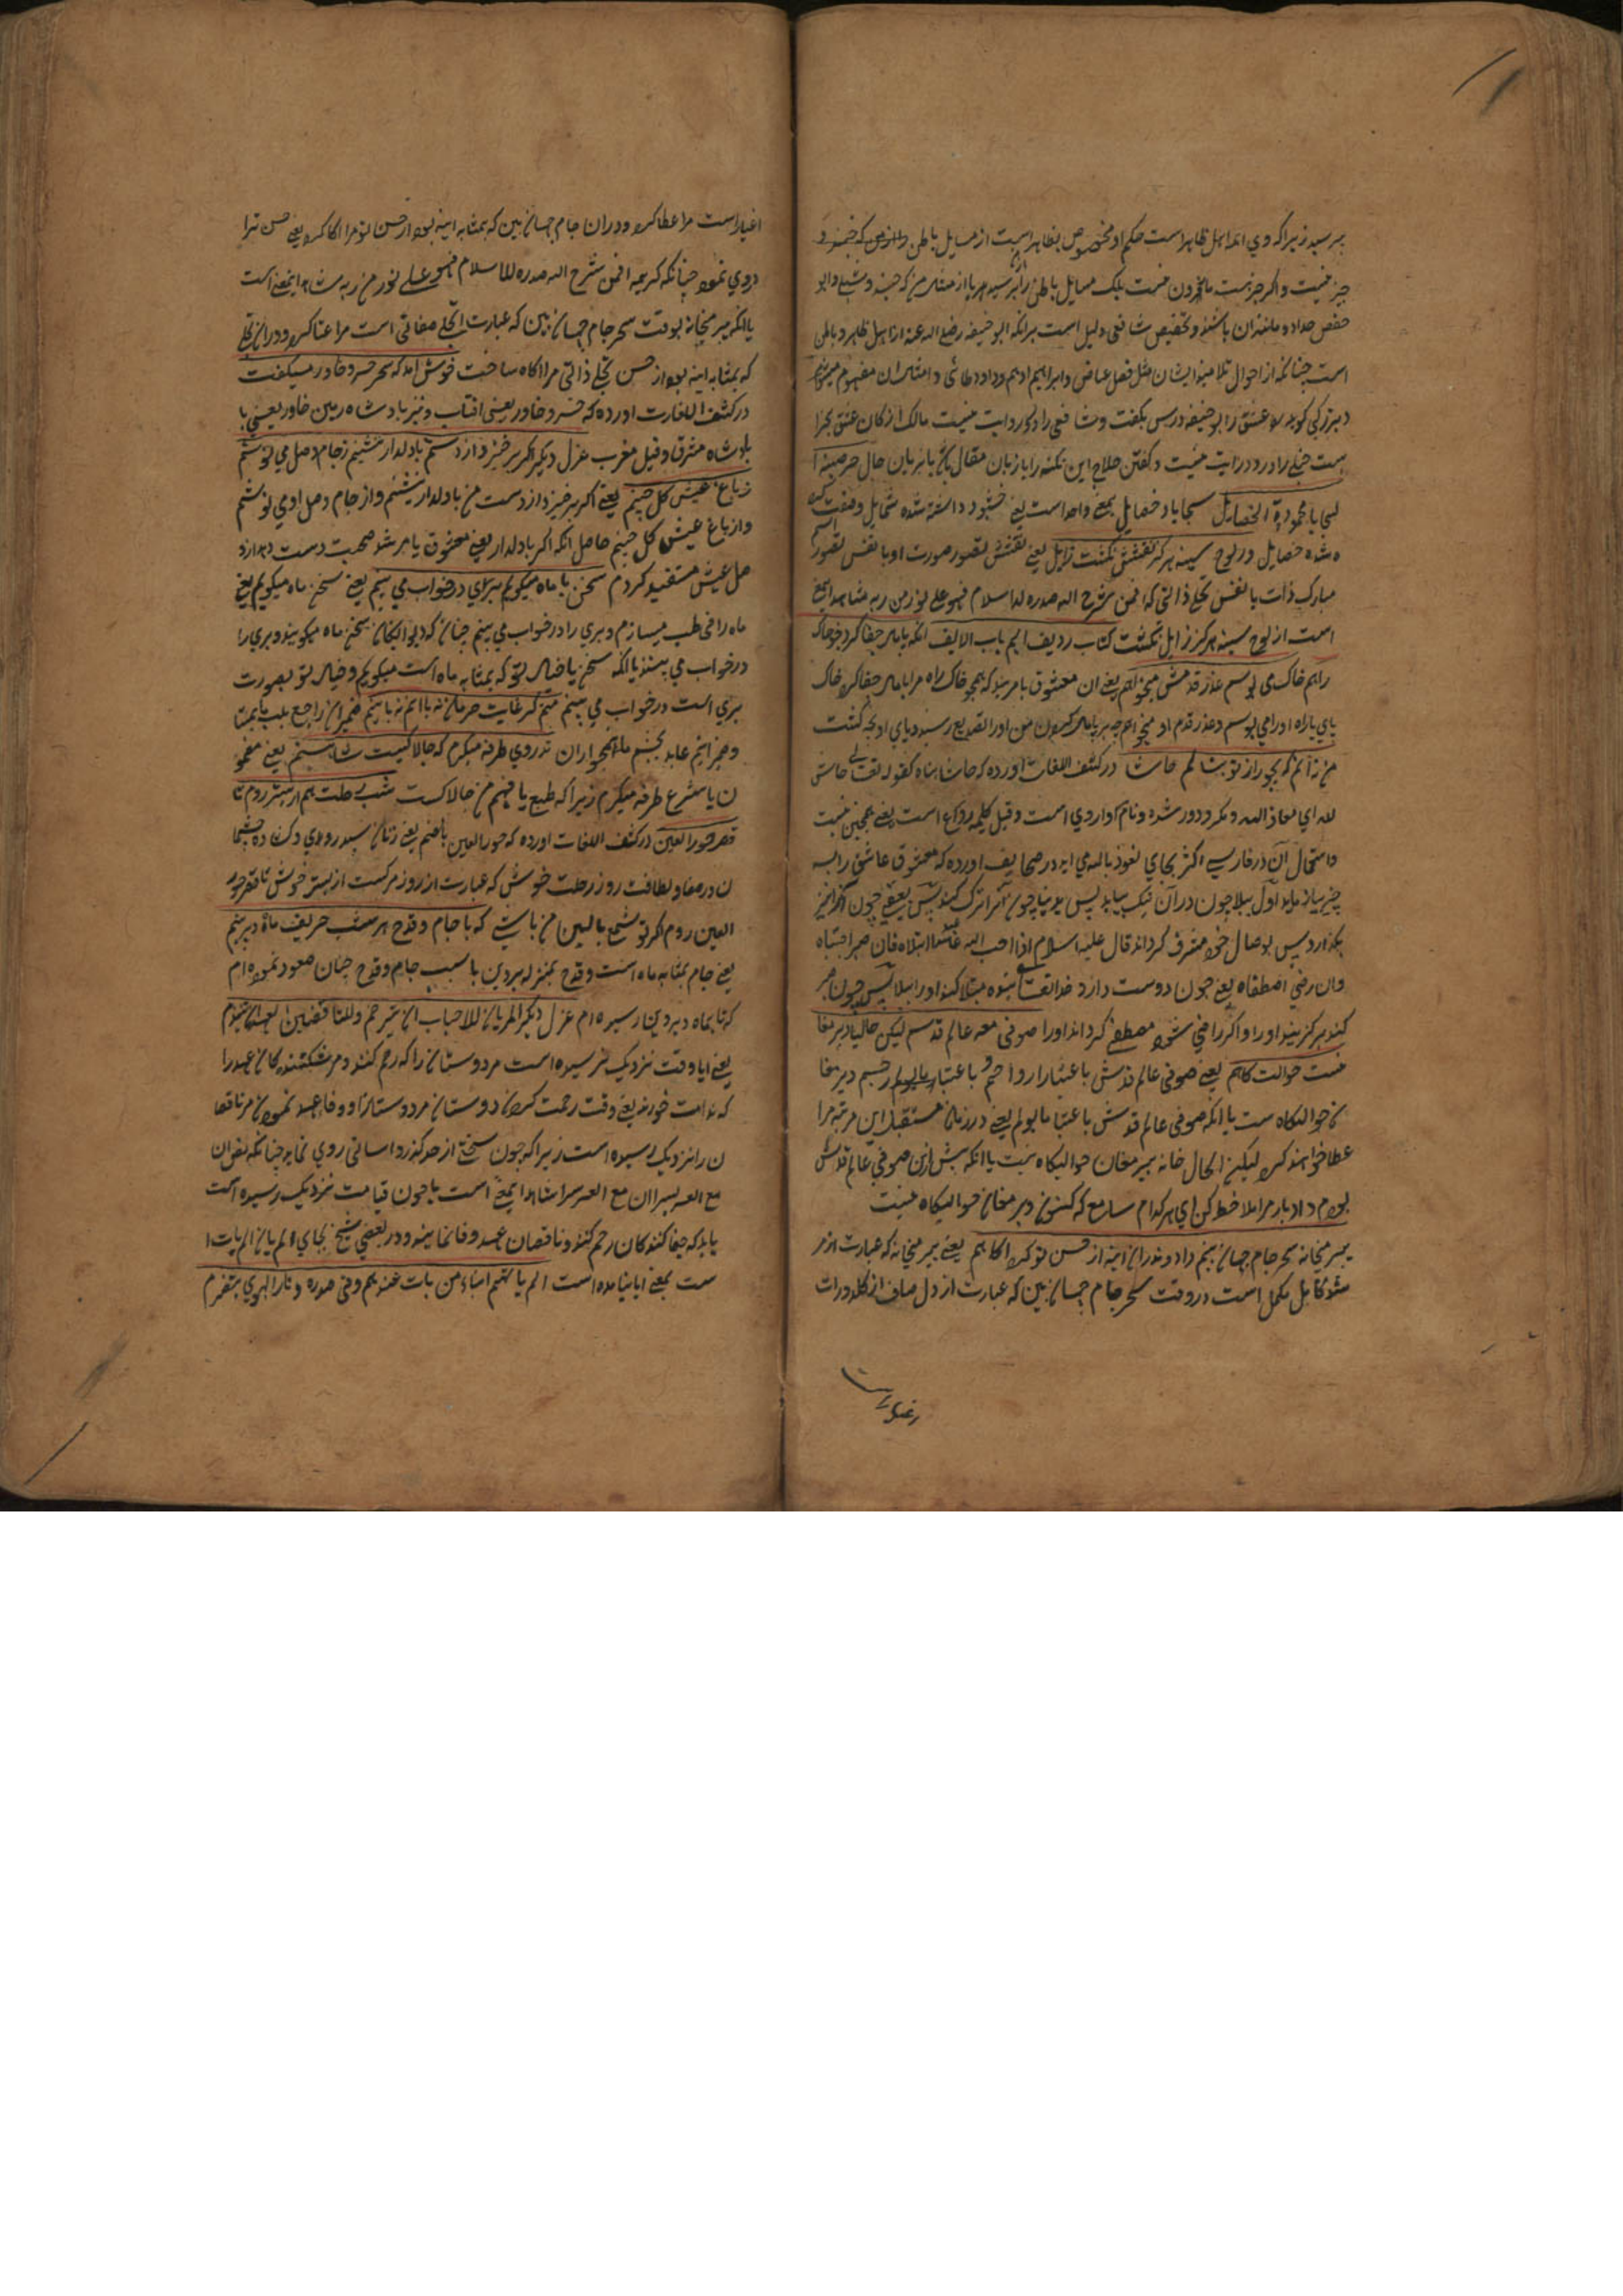 بپرسید زیرا که وی از اهل ظاهر است حکم او مخصوص بظاهر است از مسایل باطن
چیز نیست و اگر چیزیست ماخوذ نیست بلک مسایل باطن را بپرسید
حفص حداد و مانند ان باشند و تخصیص شافعی دلیل است برانکه ابو حنیفه رضی الله عنه از اهل ظاهر و باطن
است چنانکه از احوال تلامیذ ایشان مثل فضل عیاض و ابراهیم ادهم و داود طائی و امثال ان مفهوم میشود
بزرگی کوید عشق را بو حنیفه درس نکفت و شافعی را درو روایت نیست مالک از کان عشق
است حنبلی را درو درایت نیست و کفتن حلاج این نکته را با زبان مقال یا بزبان حال
سجایا محمودة الخصایل سجایا و خصایل بمعنی واحد است یعنی خشنود داشته شده شمایل و صفت
شده خصایل در لوح سینه هرکز نقشش نکشت زایل یعنی نقشش تصور صورت او یا نقش تصور
مبارک ذات یا نقش تجلی ذاتی که افمن شرح الله صدره للاسلام فهو علی نور من ربه شاهد این معنی
است از لوح سینه هرکز زایل نکشت کتاب ردیف المیم باب الالف انکه پامال جفا کرد چو خاک
راهم خاک می بوسم و عذر قدمش میخواهم یعنی ان معشوق بامرتبه که همچو خاک راه مرا پامال جفا کرد خاک
پای یا راه او را می بوسم و عذر قدم او میخواهم چه بر پامال کردن من او را تصدیع رسید و پای او رنجه کشت
من نه انم که بجور از تو بنالم حاشا در کشف اللغات اورده که حاشا پناه کقوله تعالی حاش
لله ای معاذ الله و مکر و دور شده و نام دارویی است و قیل کلمه ردع است یعنی همچنین نیست
و استعمال ان در فارسی اکثر بجای نعوذ بالله می اید در صحایف اورده که معشوق عاشق را به
چیز بیازماید اول ببلا چون در ان نیک بیاید پس بدنیا چون انرا ترک کند پس بعقبی چون انرا نیز
بکذارد پس بوصال خود مشرف کرداند قال علیه السلام اذا احب الله عبدا ابتلاه فان صبر اجتباه
و ان رضی اصطفاه یعنی چون دوست دارد خدای تعالی بنده مبتلا کند او را ببلا پس چون صبر
کند برکزیند او را و اکر راضی شود مصطفی کرداند او را صوفی صومعه عالم قدسم لیکن حالیا دیر مغا
نست حوالت کاهم یعنی صوفی عالم قدسش باعتبار ارواحم و باعتبار جسم دیر مغا
ن حوالتکاه ست یا انکه صوفی عالم قدسش باعتبار مایول یعنی در زمان مستقبل این مرتبه مرا
عطا خواهند کرد لیکن فی الحال خانه پیر مغان حوالتکاه ست یا انکه پیش ازین صوفی عالم قدس
بودم و ادبار مرا ملاحظه کن ای هر کدام سامع که کنون دیر مغان حوالتکاه منست
پیر میخانه سحر جام جهان بینم داد و ندران اینه از حسن تو کرد اکاهم یعنی پیر میخانه که عبارت از مر
شد کامل مکمل است در وقت سحر جام جهان بین که عبارت از دل صاف از کدورات
اغیار است مرا عطا کرد و دران جام جهان بین که بمثابه اینه بود از حسن تو مرا اکاه کرد یعنی حسن ترا
دروی نمود چنانکه کریمه افمن شرح الله صدره للاسلام فهو علی نور من ربه شاهد این معنی است
یا انکه پیر میخانه بوقت سحر جام جهان بین که عبارت از تجلی صفاتی است مرا عطا کرد و دران تجلی
که بمثابه اینه بود از حسن تجلی ذاتی مرا اکاه ساخت خوش امد که سحر خسرو خاور میکفت
در کشف اللغات اورده که خسرو خاور یعنی افتاب و نیز بادشاه زمین خاور یعنی با
بادشاه مشرق و قیل مغرب غزل دیکر اکر برخیزد از دستم که با دلدار بنشینم ز جام وصل می نوشم
ز باغ عیش کل چینم یعنی اکر برخیزد از دست من با دلدار بنشینم و از جام وصل او می نوشم
و از باغ عیش کل چینم حاصل انکه اکر با دلدار یعنی معشوق یا مرشد صحبت دست دهد از و
صل عیش مستفید کردم سخن با ماه میکویم پری در خواب می بینم یعنی سخن ماه میکویم یعنی
ماه را مخاطب میسازم و پری را در خواب می بینم چنان که دیوانکان سخن ماه میکویند و پری را
در خواب می بینند یا انکه سخن با خیال تو که بمثابه ماه است میکویم و خیال تو بصورت
پری است در خواب می بینم منم کز غایت حرمان نه با انم نه با اینم ضمیر ان راجع
شب رحلت هم از بستر روم تا
قصر حور العین در کشف اللغات اورده که حور العین بالضم یعنی زنان سپید روی و کشاده چشما
ن در صفا و لطافت روز رحلت خوش که عبارت از روز مرک است از بستر خوش تا قصر حور
العین روم اکر تو شمع بالین من باشی که با جام و قدح هر شب حریف ماه و پروینم
یعنی جام بمثابه ماه است و قدح بمنزله پروین یا بسبب جام و قدح چنان صعود نموده ام
که تا بماه و پروین رسیده ام غزل دیکر الم یان للاحباب ان یترحموا و للناقضین العهد ان یتندموا
یعنی ایا وقت نزدیک نرسیده است مر دوستان را که رحم کنند و مر شکستند کان عهد را
که ندامت خورند یعنی وقت رحمت کردن دوستان مر دوستانرا و وفا عهد نمودن مر ناقضا
ن را نزدیک رسیده است زیرا که چون سختی از حد کذرد اسانی روی نماید چنانکه نص ان
مع العسر یسرا ان مع العسر یسرا شاهد این معنی است یا چون قیامت نزدیک رسیده است
باید که جفا کنند کان رحم کنند و ناقضان عهد وفا نمایند و در بعضی نسخ بجای الم یان الم یات ا
ست بمعنی ایا نیامده است الم یاتهم انباء من بات عندهم و فی صدره نار الهوی یتضرم